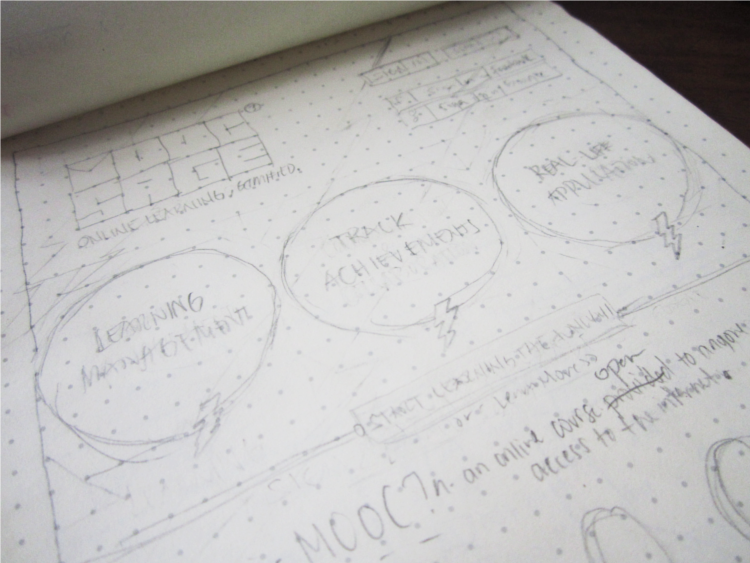 MOOC
SAGE
ONLINE LEARNING,
LEARNING
MANAGEMENT
TRACK
ACHIEVEMENTS
REAL-LIFE
APPLICATION
START LEARNING THE
or Learn More >>
MOOC] n. an online course open to anyone
access to the internet.